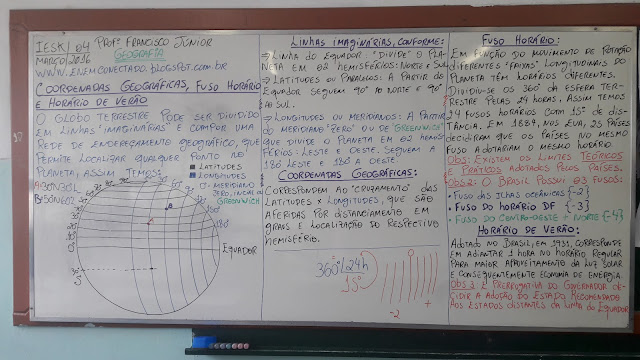 IESK/04 PROFº FRANCISCO JÚNIOR
MARÇO/2016 GEOGRAFIA
WWW.ENEMCONECTADO.blogspot.com.br
COORDENADAS GEOGRÁFICAS, FUSO HORÁRIO
E HORÁRIO DE VERÃO
O GLOBO TERRESTRE PODE SER DIVIDIDO
EM LINHAS "IMAGINÁRIAS" E COMPOR UMA
REDE DE ENDEREÇAMENTO GEOGRÁFICO, QUE
PERMITE LOCALIZAR QUALQUER PONTO NO
PLANETA, ASSIM TEMOS:
LATITUDES
LONGITUDES
0º- MERIDIANO
GREENWICH
EQUADOR
LINHAS IMAGINÁRIAS, CONFORME:
⇒ LINHA DO EQUADOR "DIVIDE" O PLA-
NETA EM 02 HEMISFÉRIOS: NORTE E SUL
⇒ LATITUDES OU PARALELOS: A PARTIR DO
EQUADOR SEGUEM 90º AO NORTE E 90º
AO SUL.
⇒ LONGITUDES OU MERIDIANOS: A PARTIR
DO MERIDIANO "ZERO" OU DE GREENWICH
QUE DIVIDE O PLANETA EM 02 HEMIS-
FÉRIOS: LESTE E OESTE. SEGUEM A
180 LESTE E 180 A OESTE.
COORDENADAS GEOGRÁFICAS:
CORRESPONDEM AO "CRUZAMENTO" DAS
LATITUDES X LONGITUDES, QUE SÃO
AFERIDAS POR DISTANCIAMENTO EM
GRAUS E LOCALIZAÇÃO DO RESPECTIVO
HEMISFÉRIO.
360º 24h
15º
0
-2 +
FUSO HORÁRIO:
EM FUNÇÃO DO MOVIMENTO DE ROTAÇÃO
DIFERENTES "FAIXAS" LONGITUDINAIS DO
PLANETA TÊM HORÁRIOS DIFERENTES.
DIVIDIU-SE OS 360º DA ESFERA TER-
RESTRE PELAS 24 HORAS, ASSIM TEMOS
24 FUSOS HORÁRIOS COM 15º DE DIS-
TÂNCIA. EM 1884, NOS EUA, 25 PAÍSES
DECIDIRAM QUE OS PAÍSES NO MESMO
FUSO ADOTARIAM O MESMO HORÁRIO.
Obs: EXISTEM OS LIMITES TEÓRICOS
E PRÁTICOS ADOTADOS PELOS PAÍSES.
Obs 2: O BRASIL POSSUI 03 FUSOS:
• FUSO DAS ILHAS OCEÂNICAS {-2}
• FUSO DO HORÁRIO DF {-3}
• FUSO DO CENTRO-OESTE E NORTE {-4}
HORÁRIO DE VERÃO:
ADOTADO NO BRASIL, EM 1931, CORRESPONDE
EM ADIANTAR 1 HORA NO HORÁRIO REGULAR
PARA MAIOR APROVEITAMENTO DA LUZ SOLAR
E CONSEQUENTEMENTE ECONOMIA DE ENERGIA.
Obs 3: É PRERROGATIVA DO GOVERNADOR DE-
CIDIR A ADOÇÃO DO ESTADO. RECOMENDADO
AOS ESTADOS DISTANTES DA LINHA DO EQUADOR